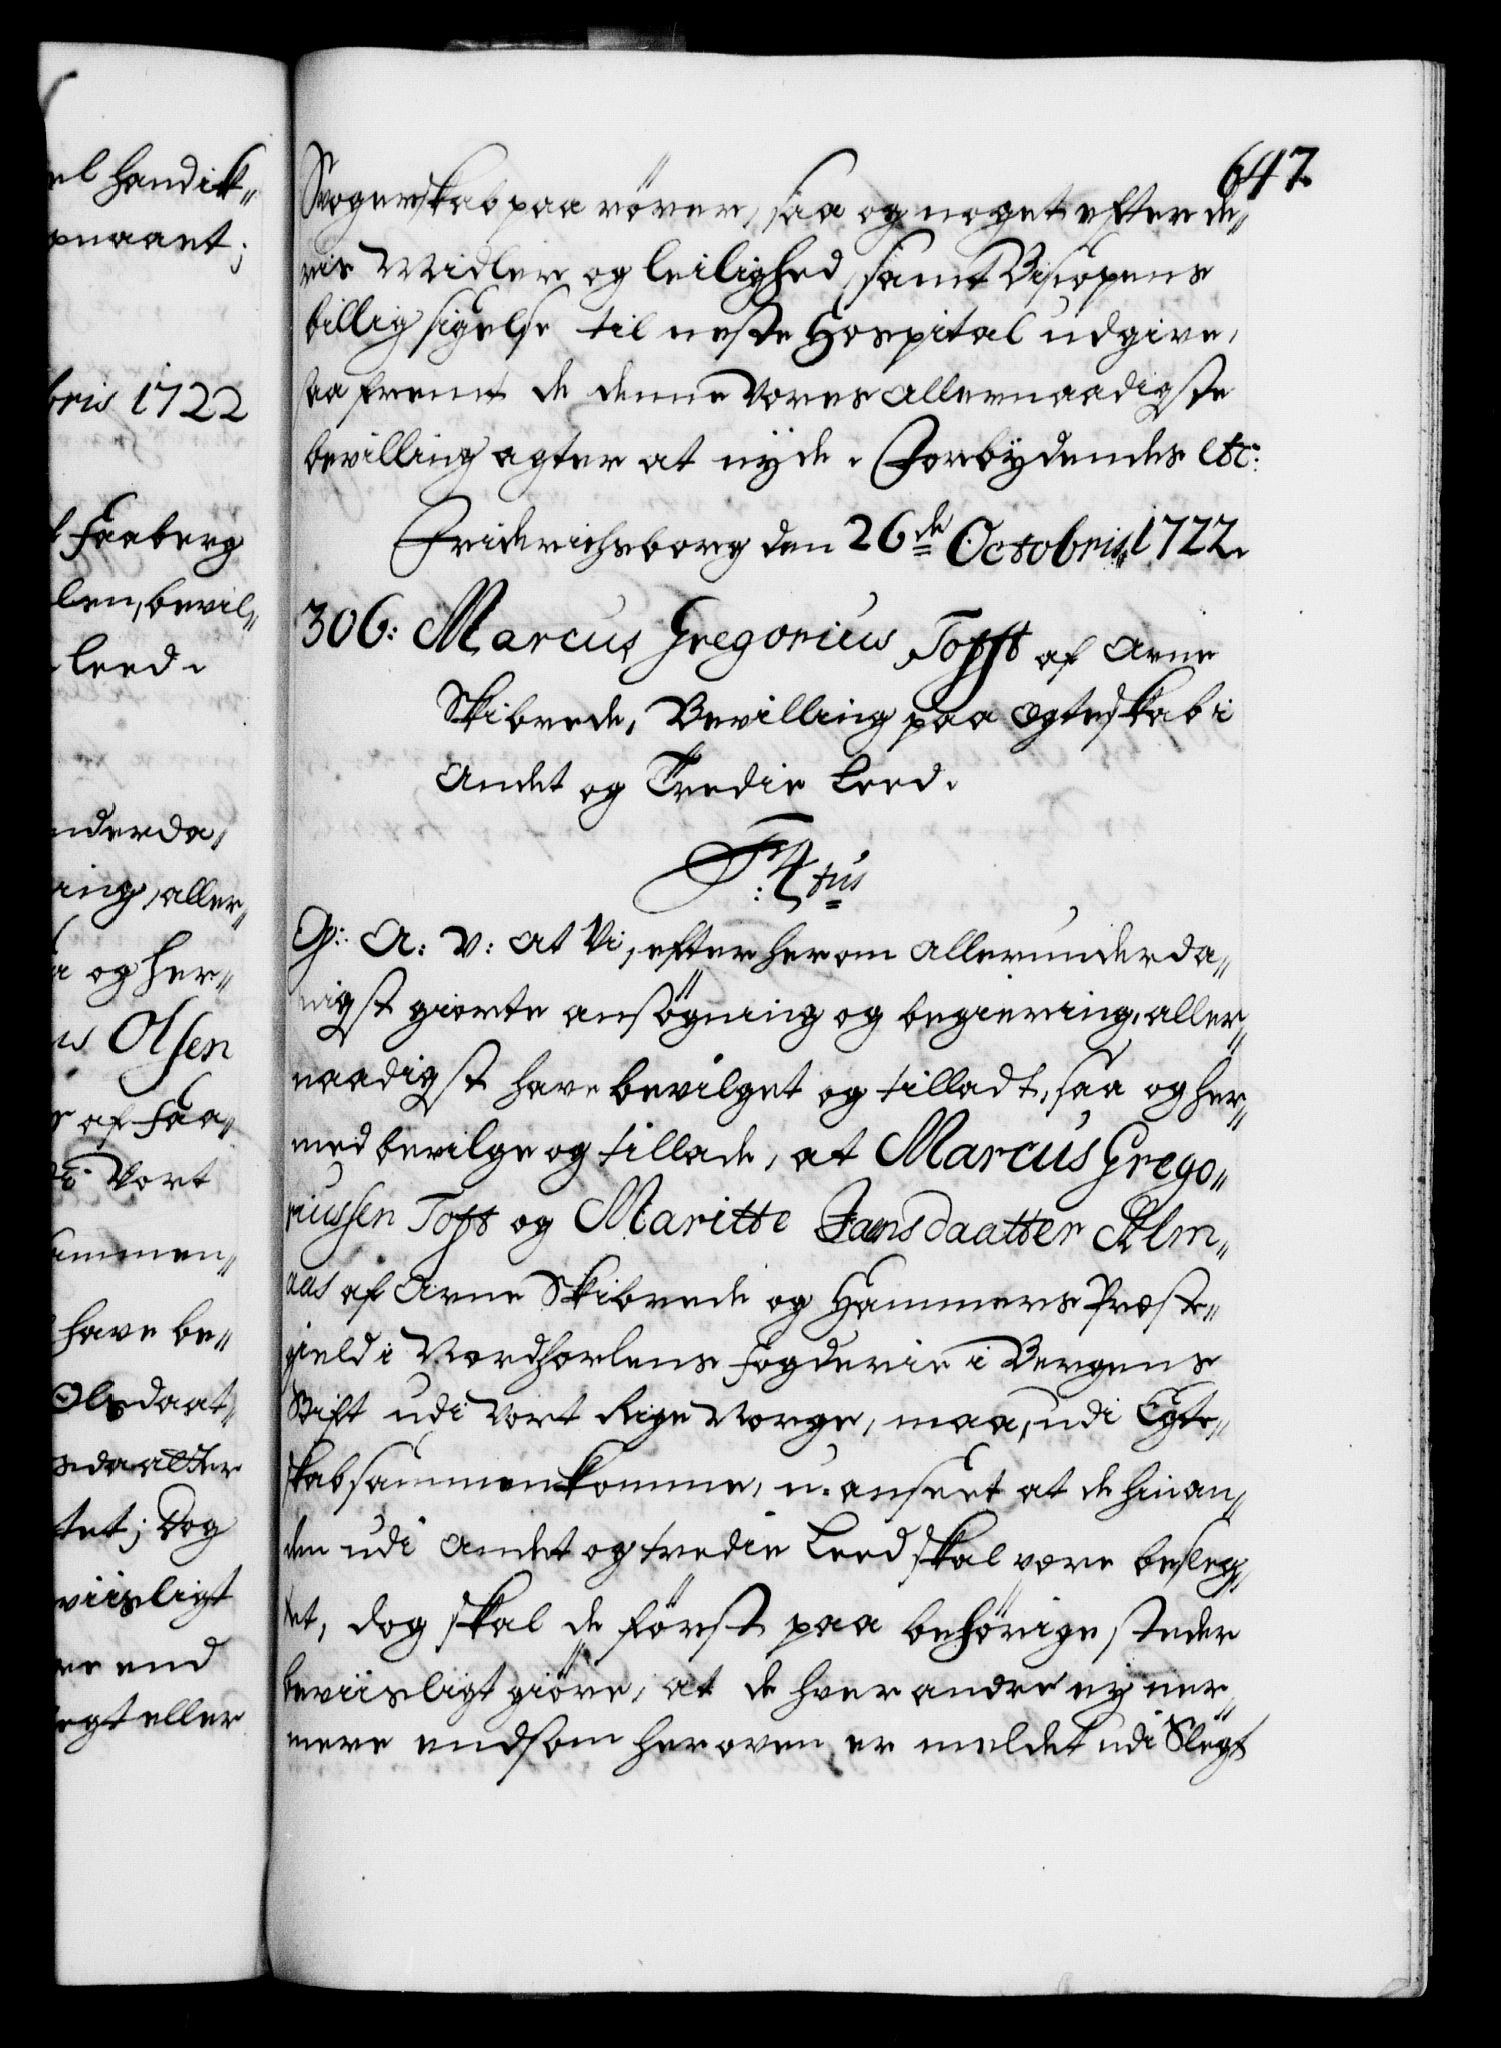 el handik„
pnaant;
bris 1722
Faaberg
len, bevil„
leed.
nderda„
ing, aller„
a og her„
us Olsen
r af Faa„
di Vort
ammen„
have be„
Olsdaat„
sdaatter
tet; Dog
viisligt
re end
egt eller
647.
Svogerskab paarörer, saa og noget efter de„
ris Midler og leilighed, samt Biscopens
billig sigelse til neste Hospital udgive,
saafremt de denne Vores allernaadigste
bevilling agter at nyde. Forbydendes etc:
Friderichsborg den 26de Octobris 1722.
306: Marcus Gregorius Tofft af Arne
Skibrede, Bevilling paa Egteskab i
Andet og Tredie Leed.
F:4tus
G: A: V: At Vi, efter herom allerunderda„
nigst giorte ansögning og begiering, aller„
naadigst have bevilget og tilladt, saa og her„
med bevilge og tillade, at Marcus Grego„
riussen Toft og Maritte Jansdaatter Alm„
aas af Arne Skibrede og Hammers Præste„
gield i Nordhorlens Fogderie i Bergens
Stift udi Vort Rige Norge, maa, udi Egte„
skab sammenkomme, u-anseet at de hinan„
den udi Andet og tredie Leed skal være besleg„
tet, dog skal de först paa behörige steder
beviisligt giöre, at de hverandre ey ner„
mere end som heroven er meldet udi Slegt